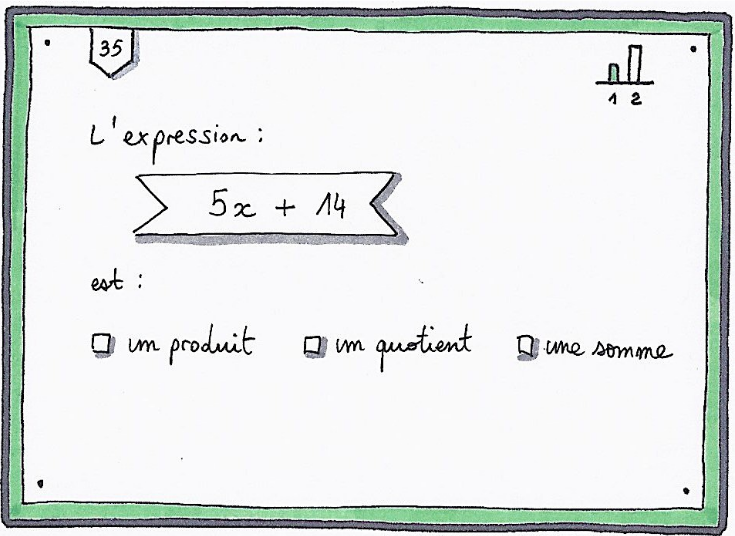 35
1 2
L'expression :
5x + 14
est :
☐ un produit ☐ un quotient ☐ une somme